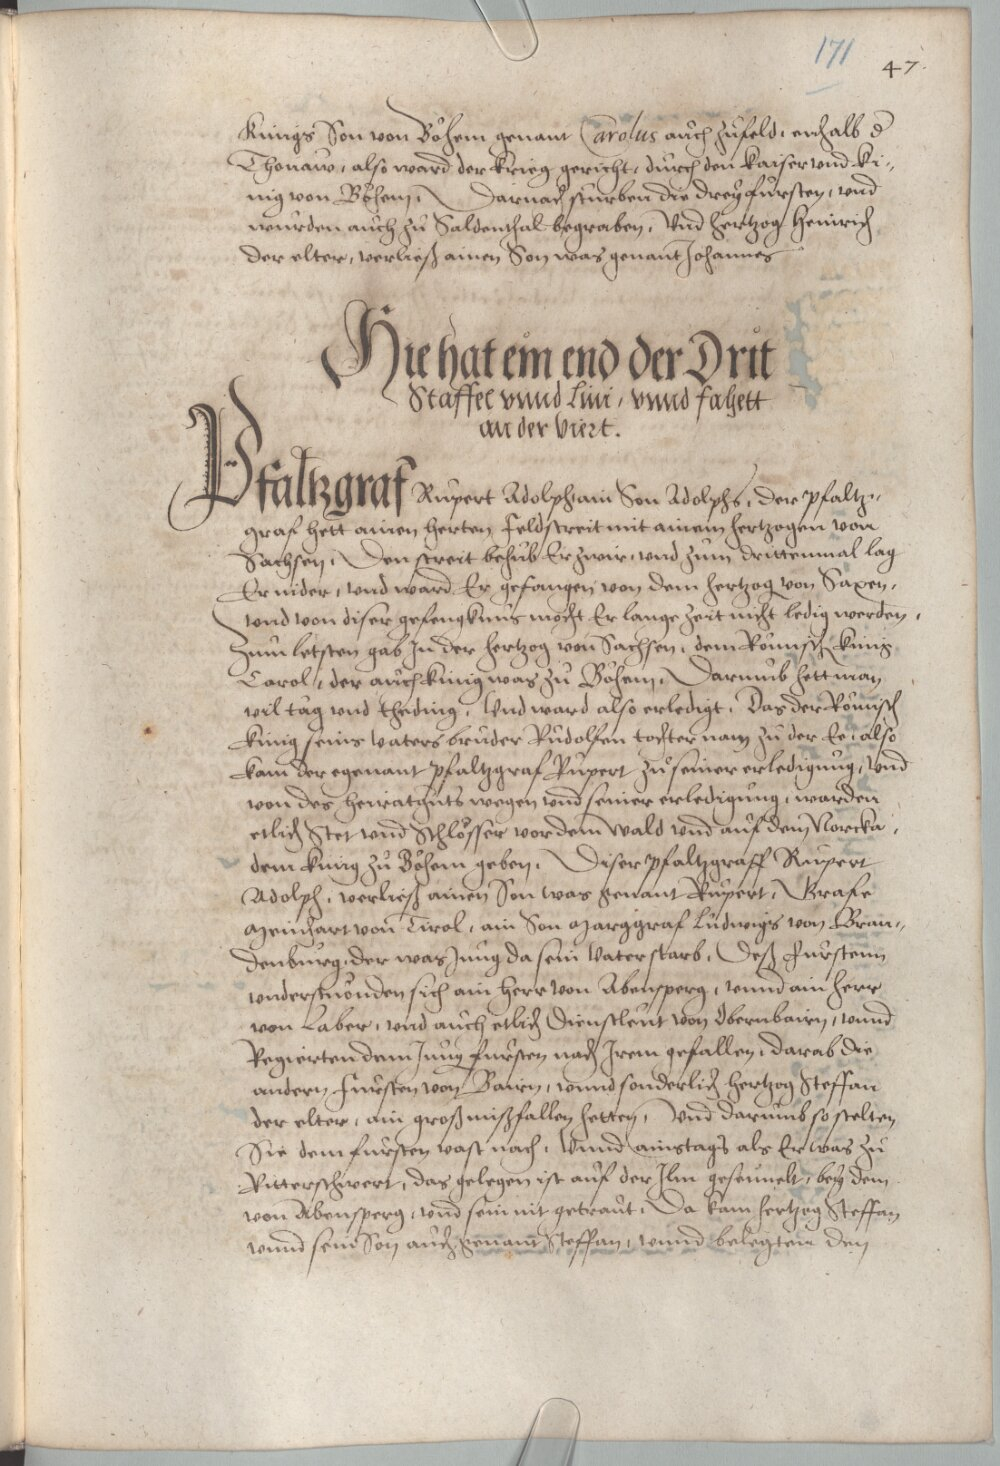 171
47.
Künigs Son von Böhem genant Carolus auch zůfeld, enhalb d
Thonaw, also ward der krieg gericht, durch den kaiser vnd kü-
nig von Böhem, Darnach sturben die dreÿ fürsten, vnd
wurden auch zů Saldenthal begraben, Vnd hertzog Heinrich
der elter, verließ ainen Son was genant Johannes
Hie hat ein end der Drit
Staffel vnnd Lini, vnnd fahett
an der Viert.
Pfaltzgraf Rupert Adolph ain Son Adolphs, der pfaltz-
graf hett ainen herten feldstreit mit ainem hertzogen von
Sachsen, Den streit behůb Er zwir, vnd zum drittenmal lag
Er nider, vnd ward Er gefangen von dem hertzog von Saxen,
vnd von diser gefengknus mocht Er lange zeit nicht ledig werden,
zum letsten gab Jn der hertzog von Sachsen, dem Römisch künig
Carol, der auch künig was zů Böhem, Darumb hett man
vil tag vnd theding, Vnd ward also erledigt, Das der Römisch
künig seins vaters brůder Růdolfen tochter nam zů der Ee, also
kam der egenant pfaltzgraf Rupert zů seiner erledigung, Vnd
von des heiratgůts wegen vnd seiner erledigung, warden
etlich Stet vnd Schlösser vor dem wald vnd auf dem Norcka,
dem künig zů Böhem geben, Diser pfaltzgraff Rupert
Adolph, verließ ainen Son was genant Rupert, Grafe
Meinhart von Tirol, ain Son Marggraf Ludwigs von Bran-
denburg, der was Jung da sein Vater starb, Deß fürstenn
vnderstuonden sich ain herr von Abensperg, vnnd ain herr
von Laber, vnd auch etlich dienstleut von Obernbairn, vnnd
Regierten dem Jung fürsten nach Jrem gefallen, darab die
andern fürsten von Bairn, vnnd sonderlich hertzog Steffan
der elter, ain groß mißfallen hetten, Vnd darumb so stelten
Sie dem fürsten vast nach, Vnnd ainstags als Er was zů
Ritterschwert, das gelegen ist auf der Jlm, beÿ dem
von Abensperg, vnd sein nit getraut, Da kam hertzog Steffan
vnnd sein Son auch genant Steffan, vnnd belegten den